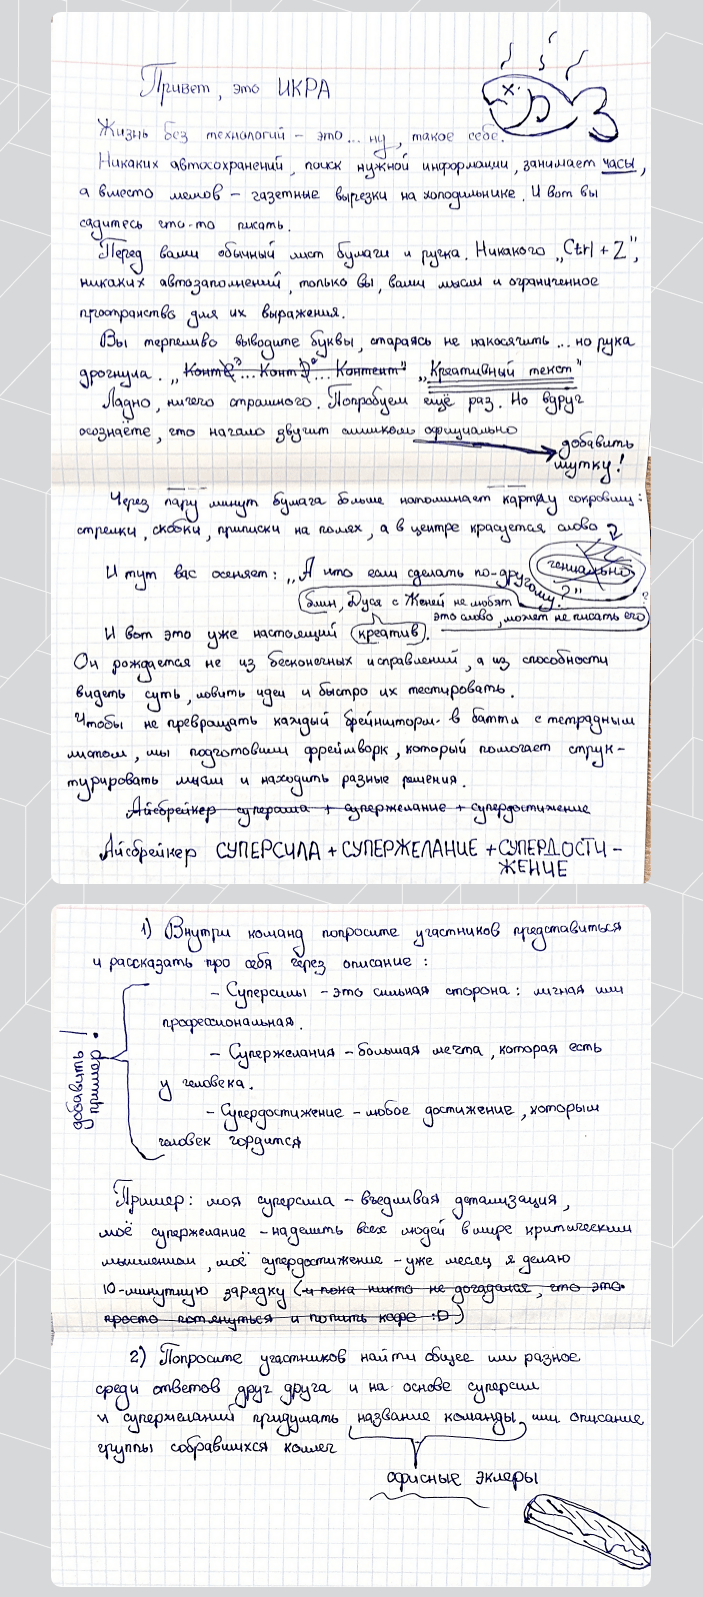 Привет, это ИКРА
Жизнь без технологий – это... ну, такое себе.
Никаких автосохранений, поиск нужной информации, занимает часы,
а вместо мемов – газетные вырезки на холодильнике. И вот вы
садитесь что-то писать.
Перед вами обычный лист бумаги и ручка. Никакого „Ctrl + Z",
никаких автозаполнений, только вы, ваши мысли и ограниченное
пространство для их выражения.
Вы терпеливо выводите буквы, стараясь не накосячить... но рука
дрогнула. „Конт ... Конт ... Контент" „Креативный текст"
Ладно, ничего страшного. Попробуем ещё раз. Но вдруг
осознаёте, что начало звучит слишком официально
добавить
шутку!
Через пару минут бумага больше напоминает карту сокровищ:
стрелки, скобки, приписки на полях, а в центре красуется слово
гениально
И тут вас осеняет: „А что если сделать по-другому?"
блин, Дуся с Женей не любят
это слово, может не писать его?
И вот это уже настоящий креатив.
Он рождается не из бесконечных исправлений, а из способности
видеть суть, ловить идеи и быстро их тестировать.
Чтобы не превращать каждый брейншторм в баттл с тетрадным
листом, мы подготовили фреймворк, который помогает струк-
турировать мысли и находить разные решения.
Айсбрейкер суперсила + супержелание + супердостижение
Айсбрейкер СУПЕРСИЛА + СУПЕРЖЕЛАНИЕ + СУПЕРДОСТИ-
ЖЕНИЕ
1) Внутри команд попросите участников представиться
и рассказать про себя через описание:
– Суперсилы – это сильная сторона: личная или
профессиональная.
– Супержелания – большая мечта, которая есть
у человека.
– Супердостижение – любое достижение, которым
человек гордится
добавить
пример!
Пример: моя суперсила – въедливая детализация,
моё супержелание – наделить всех людей в мире критическим
мышлением, моё супердостижение – уже месяц я делаю
10-минутную зарядку (и пока никто не догадался, что это
просто потянуться и попить кофе :D)
2) Попросите участников найти общее или разное
среди ответов друг друга и на основе суперсил
и супержеланий придумать название команды или описание
группы собравшихся коллег
офисные эклеры